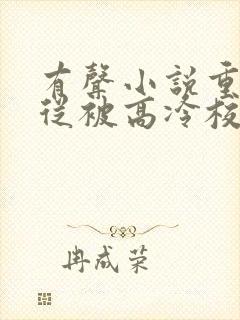 有聲小說重
從被高冷校
冉成荣